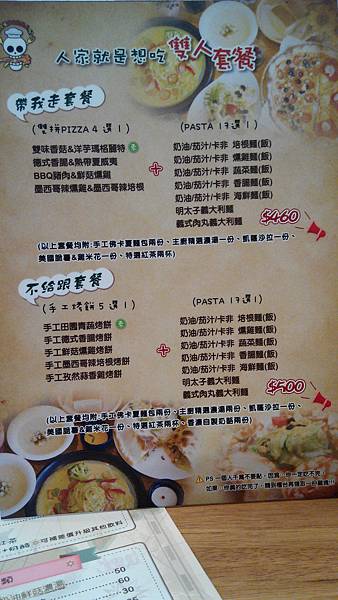 人家就是想吃 雙人套餐
帶我走套餐
(雙拼PIZZA 4 選 1)
雙味香菇&洋芋瑪格麗特
德式香腸&熱帶夏威夷
BBQ豬肉&鮮菇燻雞
墨西哥辣燻雞&墨西哥辣培根
+
(PASTA 17選 1)
奶油/茄汁/卡非 培根麵(飯)
奶油/茄汁/卡非 燻雞麵(飯)
奶油/茄汁/卡非 蔬菜麵(飯)
奶油/茄汁/卡非 香腸麵(飯)
奶油/茄汁/卡非 海鮮麵(飯)
明太子義大利麵
義式肉丸義大利麵
$460
(以上套餐均附:手工佛卡夏麵包兩份、主廚精選濃湯一份、凱薩沙拉一份、
美國脆薯&雞米花一份、特選紅茶兩杯)
不給跟套餐
(手工烤餅 5 選 1)
手工田園青蔬烤餅
手工德式香腸烤餅
手工鮮菇燻雞烤餅
手工墨西哥辣培根烤餅
手工孜然蒜香雞烤餅
+
(PASTA 17選 1)
奶油/茄汁/卡非 培根麵(飯)
奶油/茄汁/卡非 燻雞麵(飯)
奶油/茄汁/卡非 蔬菜麵(飯)
奶油/茄汁/卡非 香腸麵(飯)
奶油/茄汁/卡非 海鮮麵(飯)
明太子義大利麵
義式肉丸義大利麵
$500
(以上套餐均附:手工佛卡夏麵包兩份、主廚精選濃湯兩份、凱薩沙拉一份、
美國脆薯&雞米花一份、特選紅茶兩杯、香濃自製奶酪兩份)
PS 一個人千萬不要點，因為，你一定吃不完！
如果，你真的吃完了，請到櫃台再領取一份雞翅!!!
紅茶
可補差價升級其他飲料
類
50
奶油鮮菇濃湯
60
30
35